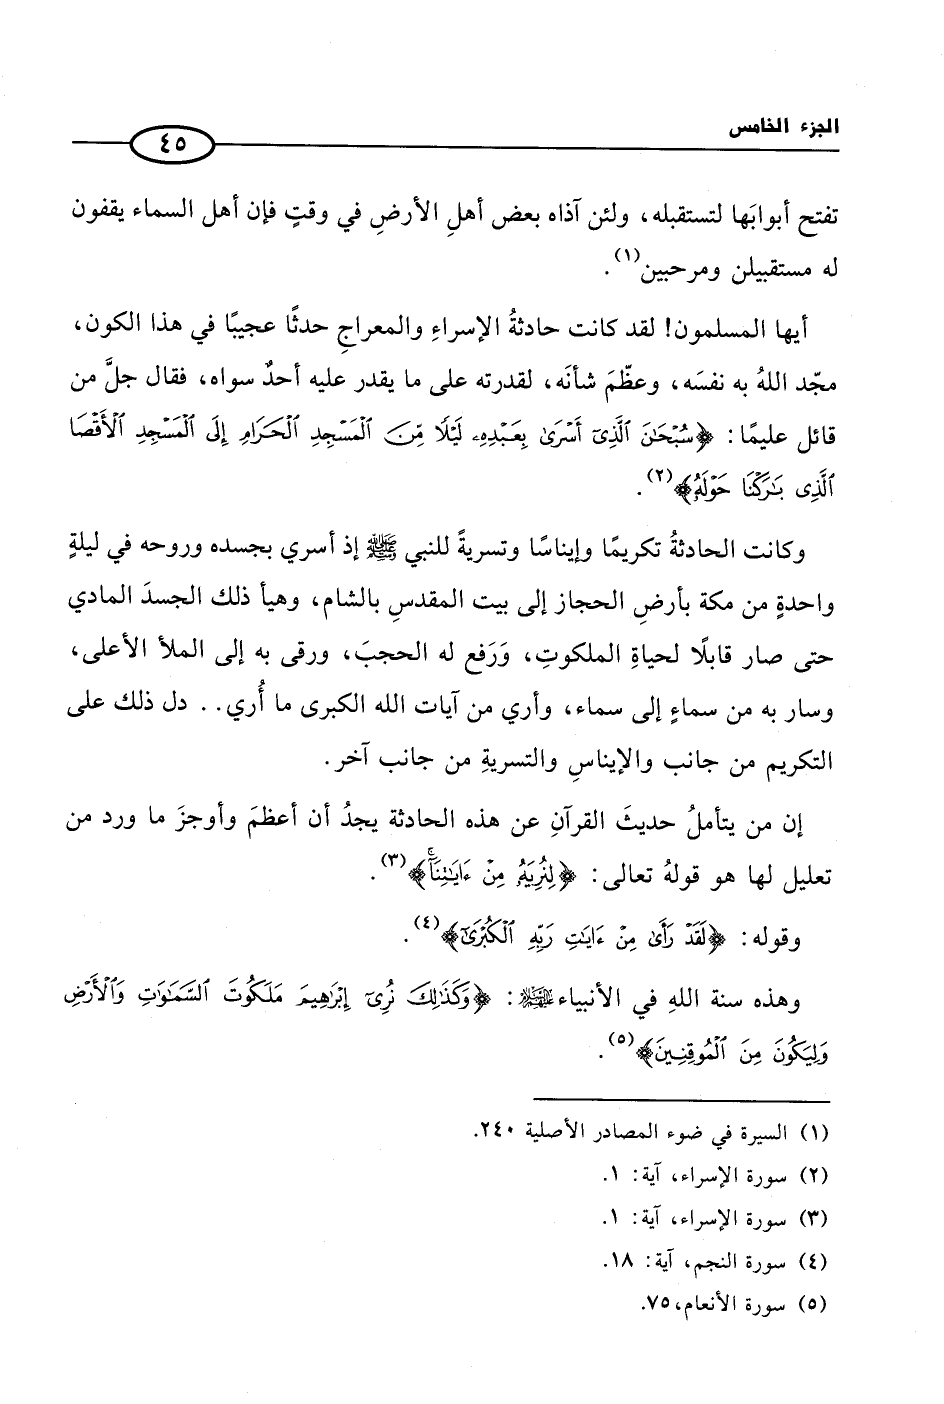 الجزء الخامس
٤٥
تفتح أبوابَها لتستقبله، ولئن آذاه بعض أهلِ الأرضِ في وقتٍ فإن أهل السماء يقفون
له مستقبيلن ومرحبين(١).
أيها المسلمون! لقد كانت حادثةُ الإسراءِ والمعراجِ حدثًا عجيبًا في هذا الكون،
مجّد اللهُ به نفسَه، وعظّمَ شأنَه، لقدرته على ما يقدر عليه أحدٌ سواه، فقال جلَّ من
قائل عليمًا: ﴿سُبْحَٰنَ ٱلَّذِىٓ أَسْرَىٰ بِعَبْدِهِۦ لَيْلًا مِّنَ ٱلْمَسْجِدِ ٱلْحَرَامِ إِلَى ٱلْمَسْجِدِ ٱلْأَقْصَا
ٱلَّذِى بَٰرَكْنَا حَوْلَهُۥ﴾(٢).
وكانت الحادثةُ تكريمًا وإيناسًا وتسريةً للنبي ﷺ إذ أسري بجسده وروحه في ليلةٍ
واحدةٍ من مكة بأرضِ الحجاز إلى بيت المقدسِ بالشام، وهيأ ذلك الجسدَ المادي
حتى صار قابلًا لحياةِ الملكوتِ، وَرَفع له الحجبَ، ورقى به إلى الملأ الأعلى،
وسار به من سماءٍ إلى سماء، وأري من آيات الله الكبرى ما أُري.. دل ذلك على
التكريم من جانب والإيناسِ والتسريةِ من جانب آخر.
إن من يتأملُ حديثَ القرآنِ عن هذه الحادثة يجدُ أن أعظمَ وأوجزَ ما ورد من
تعليل لها هو قولهُ تعالى: ﴿لِنُرِيَهُۥ مِنْ ءَايَٰتِنَآ ۚ﴾(٣).
وقوله: ﴿لَقَدْ رَأَىٰ مِنْ ءَايَٰتِ رَبِّهِ ٱلْكُبْرَىٰٓ﴾(٤).
وهذه سنة اللهِ في الأنبياء عليهم السلام: ﴿وَكَذَٰلِكَ نُرِىٓ إِبْرَٰهِيمَ مَلَكُوتَ ٱلسَّمَٰوَٰتِ وَٱلْأَرْضِ
وَلِيَكُونَ مِنَ ٱلْمُوقِنِينَ﴾(٥).
(١) السيرة في ضوء المصادر الأصلية ٢٤٠.
(٢) سورة الإسراء، آية: ١.
(٣) سورة الإسراء، آية: ١.
(٤) سورة النجم، آية: ١٨.
(٥) سورة الأنعام،٧٥.